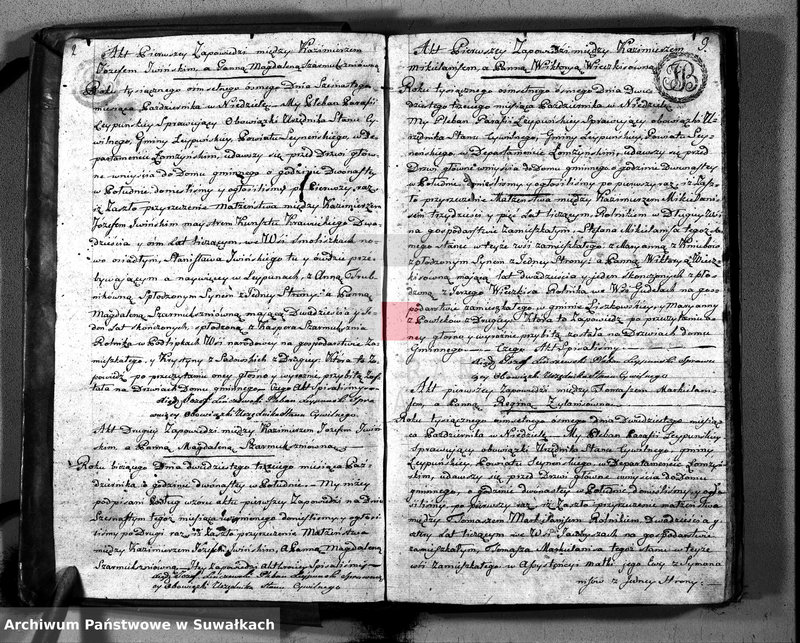 2
Akt Pierwszey Zapowiedzi między Kazimierzem
Jozefem Iwińskim, a Panną Magdaleną Szarmuksniówną
Roku tysiącznego osmsetnego osmego Dnia Szesnastego
miesiąca Pazdziernika w Niedzielę. My Pleban Parafii
Leypunskiey Sprawuiący Obowiązki Urzędnika Stanu Cy-
wilnego, Gminy Leypunskiey, Powiatu Seynenskiego, w De-
partamencie Łomżyńskim, udawszy się przed Drzwi głów-
ne wniyścia do Domu gminnego o godzinie Dwunastey
w Południe: donieslismy y ogłosilismy po pierwszy raz
iż Zaszło przyrzeczenie Małżeństwa między Kazimierzem
Jozefem Iwińskim maystrem Kunsztu Krawieckiego Dwa-
dziescia y osm Lat liczącym, we Wsi Smoliszkach no-
wo osiadłym, Stanisława Iwińskiego tu y owdzie prze-
bywaiącym a naywięcy w Leypunach, z Anną
Spłodzonym Synem z Jedney Strony: a Panną
Magdaleną Szarmuksniówną maiącą Dwadziescia y Je-
den Lat skończonych, spłodzoną z Kaspra Szarmuksnia
Rolnika w Wsi narodowey na gospodarstwie Za-
mieszkałego, y Krystyny z Sadowskich z Drugiey. Która to Za-
powiedz po przeczytaniu oney głosno y wyraznie, przybitą Zos-
tała na Drzwiach Domu gminnego. Czego Akt Spisalismy
Xiądz Jozef Pleban Leypunski Spra-
wuiący Obowiązki Urzędnika Stanu Cywilnego.
Akt Drugiey Zapowiedzi między Kazimierzem Jozefem Iwiń-
skim, a Panną Magdaleną Szarmuksniówną
Roku bieżącego Dnia dwudziestego trzeciego miesiąca Paz-
dziernika o godzinie dwunastey w Południe. My niżey
podpisani Podług wzoru aktu pierwszey Zapowiedzi na Dniu
Szesnastym tegoż miesiąca uczynionego donieslismy y ogło-
silismy po Drugi raz, iż Zaszło przyrzeczenie Małżeństwa
między Kazimierzem Jozefem Iwińskim, a Panną Magdaleną
Szarmuksniówną. Tey zapowiedzi Akt Spisalismy
Xiądz Jozef Pleban Leypunski Sprawuią-
cy Obowiązki Urzędnika Stanu Cywilnego
9.
Akt Pierwszey Zapowiedzi między Kazimierzem
Mikielanisem, a Panną Wiktoryą Wieczkisówną
Roku tysiącznego osmsetnego osmego Dnia Dwu-
dziestego trzeciego miesiąca Pazdziernika w Niedzielę
My Pleban Parafii Leypunskiey Sprawuiący obowiązki U-
rzędnika Stanu Cywilnego, Gminy Leypunskiey, Powiatu Sey-
nenskiego w Departamencie Łomżyńskim, udawszy się przed
Drzwi główne wniyścia do Domu gminnego o godzinie Dwunastey
w Południe, donieslismy y ogłosilismy po pierwszy raz iż Zasz-
ło przyrzeczenie Małżeństwa między Kazimierzem Mikielani-
sem trzydziesci y pięć Lat liczącym Rolnikiem w Długiey Wsi
na gospodarstwie zamieszkałym, Stefana Mikielanisa tegoż sa-
mego stanu w teyże wsi zamieszkałego: z Maryanną z
spłodzonym Synem z Jedney Strony: a Panną Wiktoryą Wiecz-
kisówną maiącą lat dwadziescia y ieden skonczonych z pło-
dzoną z Jerzego Wieczkisa Rolnika we Wsi Gudelach na gos-
podarstwie zamieszkałego w gminie Liszkowskiey y Maryanny
z Pawlików z Drugiey. Która to Zapowiedz po przeczytaniu o-
ney głosno y wyraznie przybitą została na Drzwiach domu
Gminnego. Czego Akt Spisalismy
Xiądz Jozef Pleban Leypunski Sprawu-
iący Obowiązki Urzędnika Stanu Cywilnego.
Akt pierwszey Zapowiedzi między Tomaszem Markielanis-
sem a Panną Reginą Zylanisówną
Roku tysiącznego osmsetnego osmego dnia Dwudziestego miesią-
ca Pazdziernika w Niedzielę My Pleban Parafii Leypunskiey
sprawuiący obowiązki Urzędnika Stanu Cywilnego, gminy
Leypunskiey, Powiatu Seynenskiego, w Departamencie Łomżyń-
skim, udawszy się przed drzwi główne wniyścia do Domu
gminnego, o godzinie dwunastey w Południe donieslismy, y ogło-
silismy po pierwszy raz, iż Zaszło przyrzeczenie małżeństwa
między Tomaszem Markielanisem Rolnikiem, Dwadziescia y
cztery Lat liczącym we Wsi na gospodarstwie
zamieszkałym, Tomasza Markielanisa tegoż stanu w teyże
wsi zamieszkałego w Assystencyi matki jego Ewy z Szyma-
nisów z Jedney Strony:
Archiwum Państwowe w Suwałkach